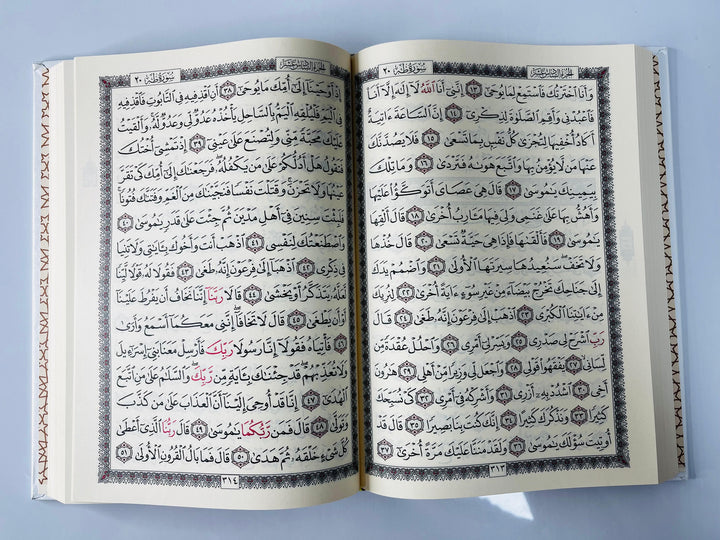 الجزء السادس عشر سورة طه ٢٠
وَأَنَا ٱخْتَرْتُكَ فَٱسْتَمِعْ لِمَا يُوحَىٰٓ ١٣ إِنَّنِىٓ أَنَا ٱللَّهُ لَآ إِلَٰهَ إِلَّآ أَنَا۠
فَٱعْبُدْنِى وَأَقِمِ ٱلصَّلَوٰةَ لِذِكْرِىٓ ١٤ إِنَّ ٱلسَّاعَةَ ءَاتِيَةٌ
أَكَادُ أُخْفِيهَا لِتُجْزَىٰ كُلُّ نَفْسٍۭ بِمَا تَسْعَىٰ ١٥ فَلَا يَصُدَّنَّكَ
عَنْهَا مَن لَّا يُؤْمِنُ بِهَا وَٱتَّبَعَ هَوَىٰهُ فَتَرْدَىٰ ١٦ وَمَا تِلْكَ
بِيَمِينِكَ يَٰمُوسَىٰ ١٧ قَالَ هِىَ عَصَاىَ أَتَوَكَّؤُا۟ عَلَيْهَا
وَأَهُشُّ بِهَا عَلَىٰ غَنَمِى وَلِىَ فِيهَا مَـَٔارِبُ أُخْرَىٰ ١٨ قَالَ أَلْقِهَا
يَٰمُوسَىٰ ١٩ فَأَلْقَىٰهَا فَإِذَا هِىَ حَيَّةٌ تَسْعَىٰ ٢٠ قَالَ خُذْهَا
وَلَا تَخَفْ ۖ سَنُعِيدُهَا سِيرَتَهَا ٱلْأُولَىٰ ٢١ وَٱضْمُمْ يَدَكَ
إِلَىٰ جَنَاحِكَ تَخْرُجْ بَيْضَآءَ مِنْ غَيْرِ سُوٓءٍ ءَايَةً أُخْرَىٰ ٢٢ لِنُرِيَكَ
مِنْ ءَايَٰتِنَا ٱلْكُبْرَى ٢٣ ٱذْهَبْ إِلَىٰ فِرْعَوْنَ إِنَّهُۥ طَغَىٰ ٢٤ قَالَ
رَبِّ ٱشْرَحْ لِى صَدْرِى ٢٥ وَيَسِّرْ لِىٓ أَمْرِى ٢٦ وَٱحْلُلْ عُقْدَةً مِّن
لِّسَانِى ٢٧ يَفْقَهُوا۟ قَوْلِى ٢٨ وَٱجْعَل لِّى وَزِيرًا مِّنْ أَهْلِى ٢٩ هَٰرُونَ
أَخِى ٣٠ ٱشْدُدْ بِهِۦٓ أَزْرِى ٣١ وَأَشْرِكْهُ فِىٓ أَمْرِى ٣٢ كَىْ نُسَبِّحَكَ
كَثِيرًا ٣٣ وَنَذْكُرَكَ كَثِيرًا ٣٤ إِنَّكَ كُنتَ بِنَا بَصِيرًا ٣٥ قَالَ قَدْ
أُوتِيتَ سُؤْلَكَ يَٰمُوسَىٰ ٣٦ وَلَقَدْ مَنَنَّا عَلَيْكَ مَرَّةً أُخْرَىٰٓ ٣٧
٣١٣
الجزء السادس عشر سورة طه ٢٠
إِذْ أَوْحَيْنَآ إِلَىٰٓ أُمِّكَ مَا يُوحَىٰٓ ٣٨ أَنِ ٱقْذِفِيهِ فِى ٱلتَّابُوتِ فَٱقْذِفِيهِ
فِى ٱلْيَمِّ فَلْيُلْقِهِ ٱلْيَمُّ بِٱلسَّاحِلِ يَأْخُذْهُ عَدُوٌّ لِّى وَعَدُوٌّ لَّهُۥ ۚ وَأَلْقَيْتُ
عَلَيْكَ مَحَبَّةً مِّنِّى وَلِتُصْنَعَ عَلَىٰ عَيْنِىٓ ٣٩ إِذْ تَمْشِىٓ أُخْتُكَ
فَتَقُولُ هَلْ أَدُلُّكُمْ عَلَىٰ مَن يَكْفُلُهُۥ ۖ فَرَجَعْنَٰكَ إِلَىٰٓ أُمِّكَ كَىْ تَقَرَّ
عَيْنُهَا وَلَا تَحْزَنَ ۚ وَقَتَلْتَ نَفْسًا فَنَجَّيْنَٰكَ مِنَ ٱلْغَمِّ وَفَتَنَّٰكَ فُتُونًا ۚ
فَلَبِثْتَ سِنِينَ فِىٓ أَهْلِ مَدْيَنَ ثُمَّ جِئْتَ عَلَىٰ قَدَرٍ يَٰمُوسَىٰ ٤٠
وَٱصْطَنَعْتُكَ لِنَفْسِى ٤١ ٱذْهَبْ أَنتَ وَأَخُوكَ بِـَٔايَٰتِى وَلَا تَنِيَا
فِى ذِكْرِى ٤٢ ٱذْهَبَآ إِلَىٰ فِرْعَوْنَ إِنَّهُۥ طَغَىٰ ٤٣ فَقُولَا لَهُۥ قَوْلًا لَّيِّنًا
لَّعَلَّهُۥ يَتَذَكَّرُ أَوْ يَخْشَىٰ ٤٤ قَالَا رَبَّنَآ إِنَّنَا نَخَافُ أَن يَفْرُطَ عَلَيْنَآ
أَوْ أَن يَطْغَىٰ ٤٥ قَالَ لَا تَخَافَآ ۖ إِنَّنِى مَعَكُمَآ أَسْمَعُ وَأَرَىٰ
٤٦ فَأْتِيَاهُ فَقُولَآ إِنَّا رَسُولَا رَبِّكَ فَأَرْسِلْ مَعَنَا بَنِىٓ إِسْرَٰٓءِيلَ
وَلَا تُعَذِّبْهُمْ ۖ قَدْ جِئْنَٰكَ بِـَٔايَةٍ مِّن رَّبِّكَ ۖ وَٱلسَّلَٰمُ عَلَىٰ مَنِ ٱتَّبَعَ
ٱلْهُدَىٰٓ ٤٧ إِنَّا قَدْ أُوحِىَ إِلَيْنَآ أَنَّ ٱلْعَذَابَ عَلَىٰ مَن كَذَّبَ
وَتَوَلَّىٰ ٤٨ قَالَ فَمَن رَّبُّكُمَا يَٰمُوسَىٰ ٤٩ قَالَ رَبُّنَا ٱلَّذِىٓ أَعْطَىٰ
كُلَّ شَىْءٍ خَلْقَهُۥ ثُمَّ هَدَىٰ ٥٠ قَالَ فَمَا بَالُ ٱلْقُرُونِ ٱلْأُولَىٰ ٥١
٣١٤